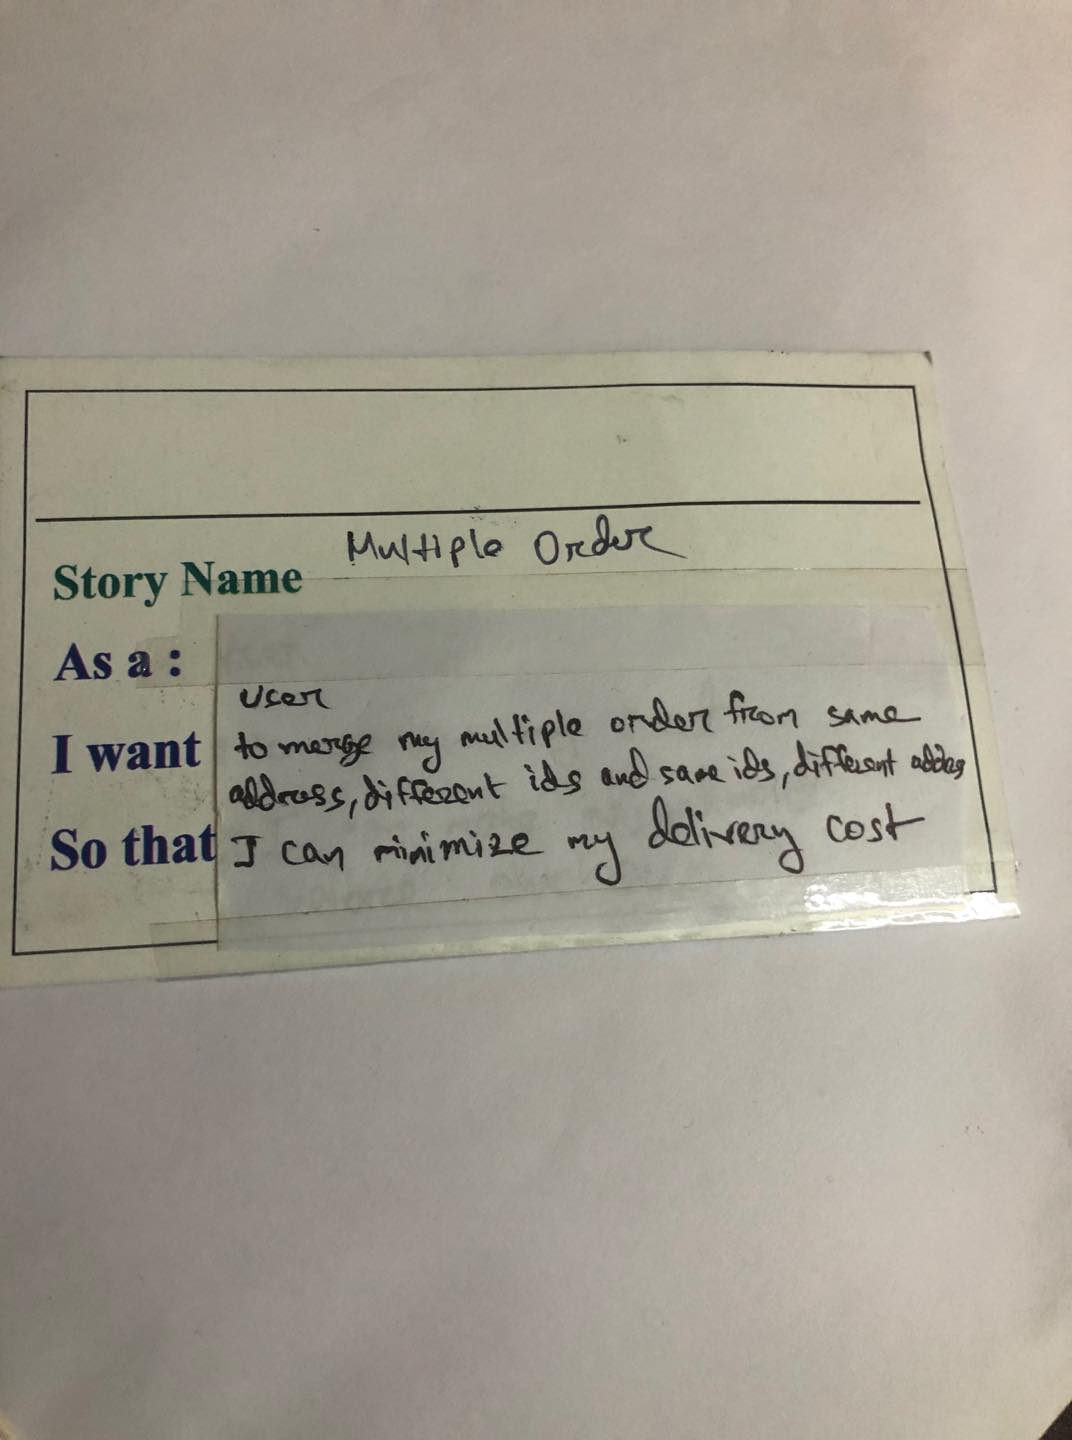 Story Name Multiple Order
As a : User
I want to merge my multiple order from same
address, different ids and same ids, different addres
So that I can minimize my delivery cost